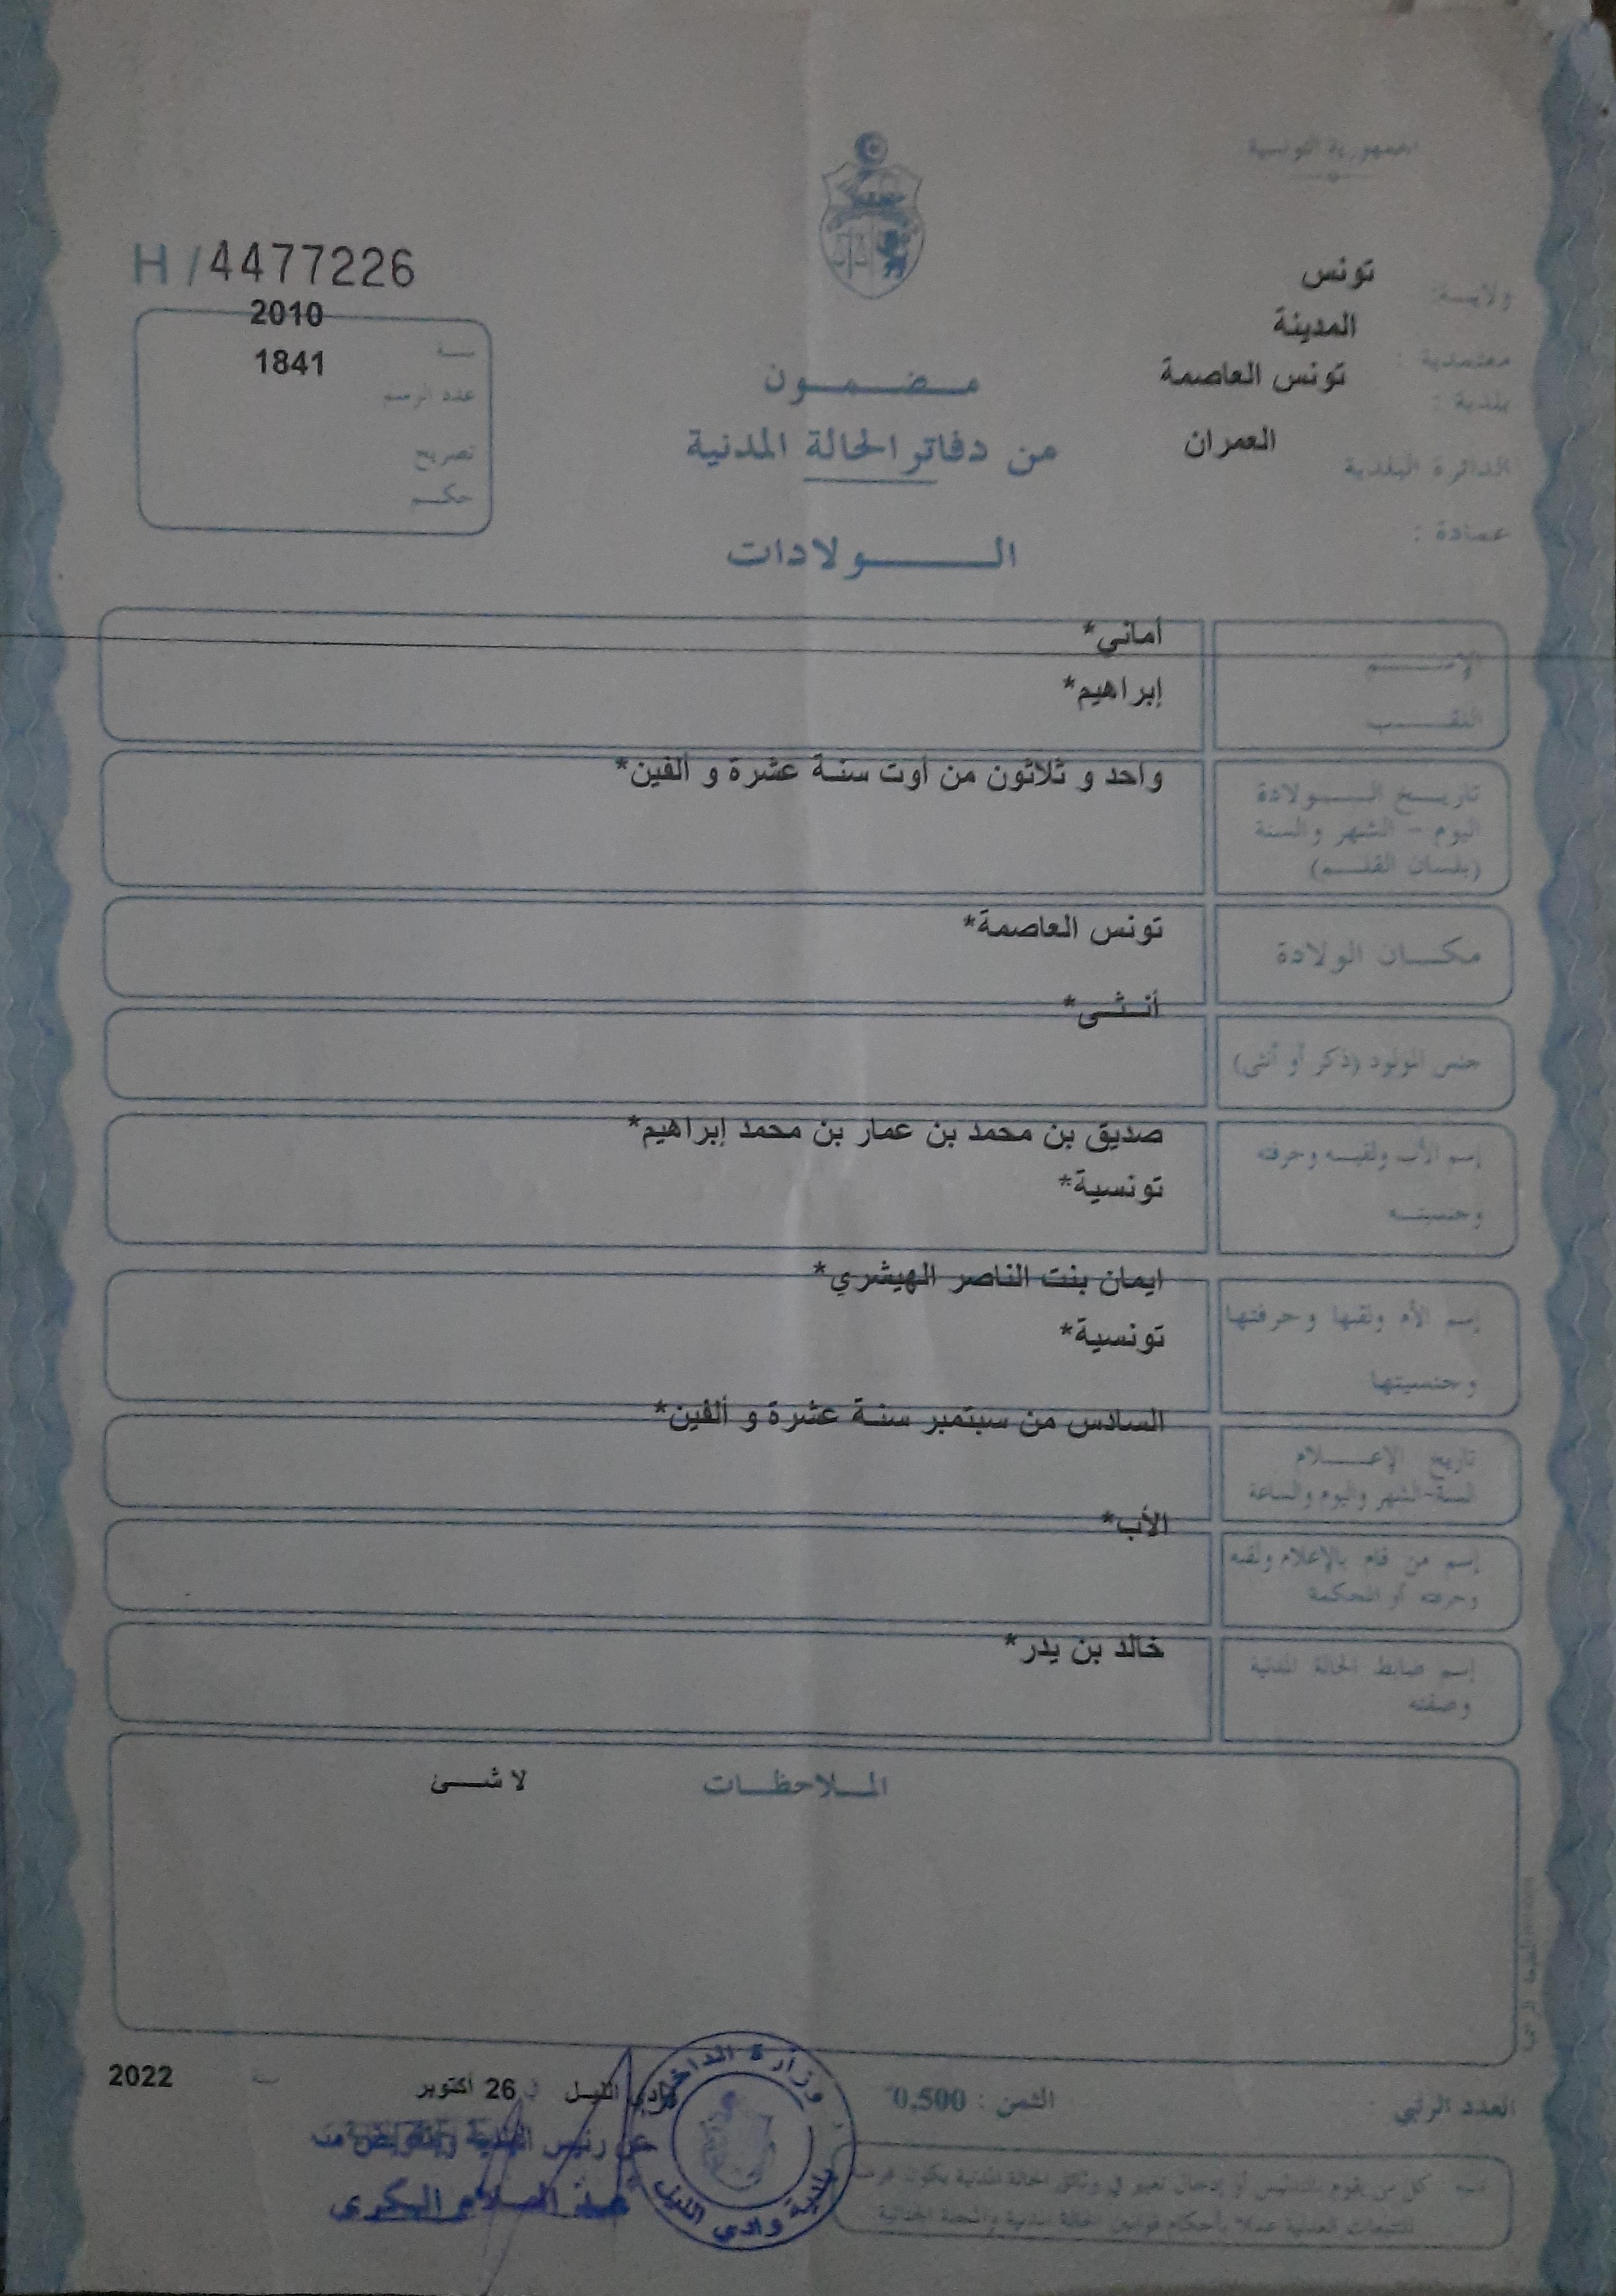 الجمهورية التونسية
H / 4477226
2010
سنة
1841
عدد الرسم
تصريح
حكم
ولاية: تونس
معتمدية : المدينة
بلدية : تونس العاصمة
الدائرة البلدية العمران
عمادة :
مضمون
من دفاتر الحالة المدنية
الولادات
الإسم أماني*
اللقب إبراهيم*
تاريخ الولادة
اليوم - الشهر والسنة
(بلسان القلم)
واحد و ثلاثون من أوت سنة عشرة و ألفين*
مكان الولادة تونس العاصمة*
جنس المولود (ذكر أو أنثى) أنثى*
إسم الأب ولقبه وحرفته صديق بن محمد بن عمار بن محمد إبراهيم*
وجنسيته تونسية*
إسم الأم ولقبها وحرفتها ايمان بنت الناصر الهيشري*
وجنسيتها تونسية*
تاريخ الإعلام السادس من سبتمبر سنة عشرة و ألفين*
السنة-الشهر واليوم والساعة
إسم من قام بالإعلام ولقبه الأب*
وحرفته أو المحكمة
إسم ضابط الحالة المدنية خالد بن يدر*
وصفته
الملاحظات لا شئ
العدد الرتبي :
الثمن : 0,500
وادي الليل في 26 أكتوبر سنة 2022
عن رئيس البلدية وبتفويض منه
عبد السلام البكري
وزارة الداخلية
بلدية وادي الليل
تنبيه : كل من يقوم بتدليس أو إدخال تغيير في وثائق الحالة المدنية يكون عرضة
للتتبعات العدلية عملا بأحكام قوانين الحالة المدنية والمجلة الجنائية